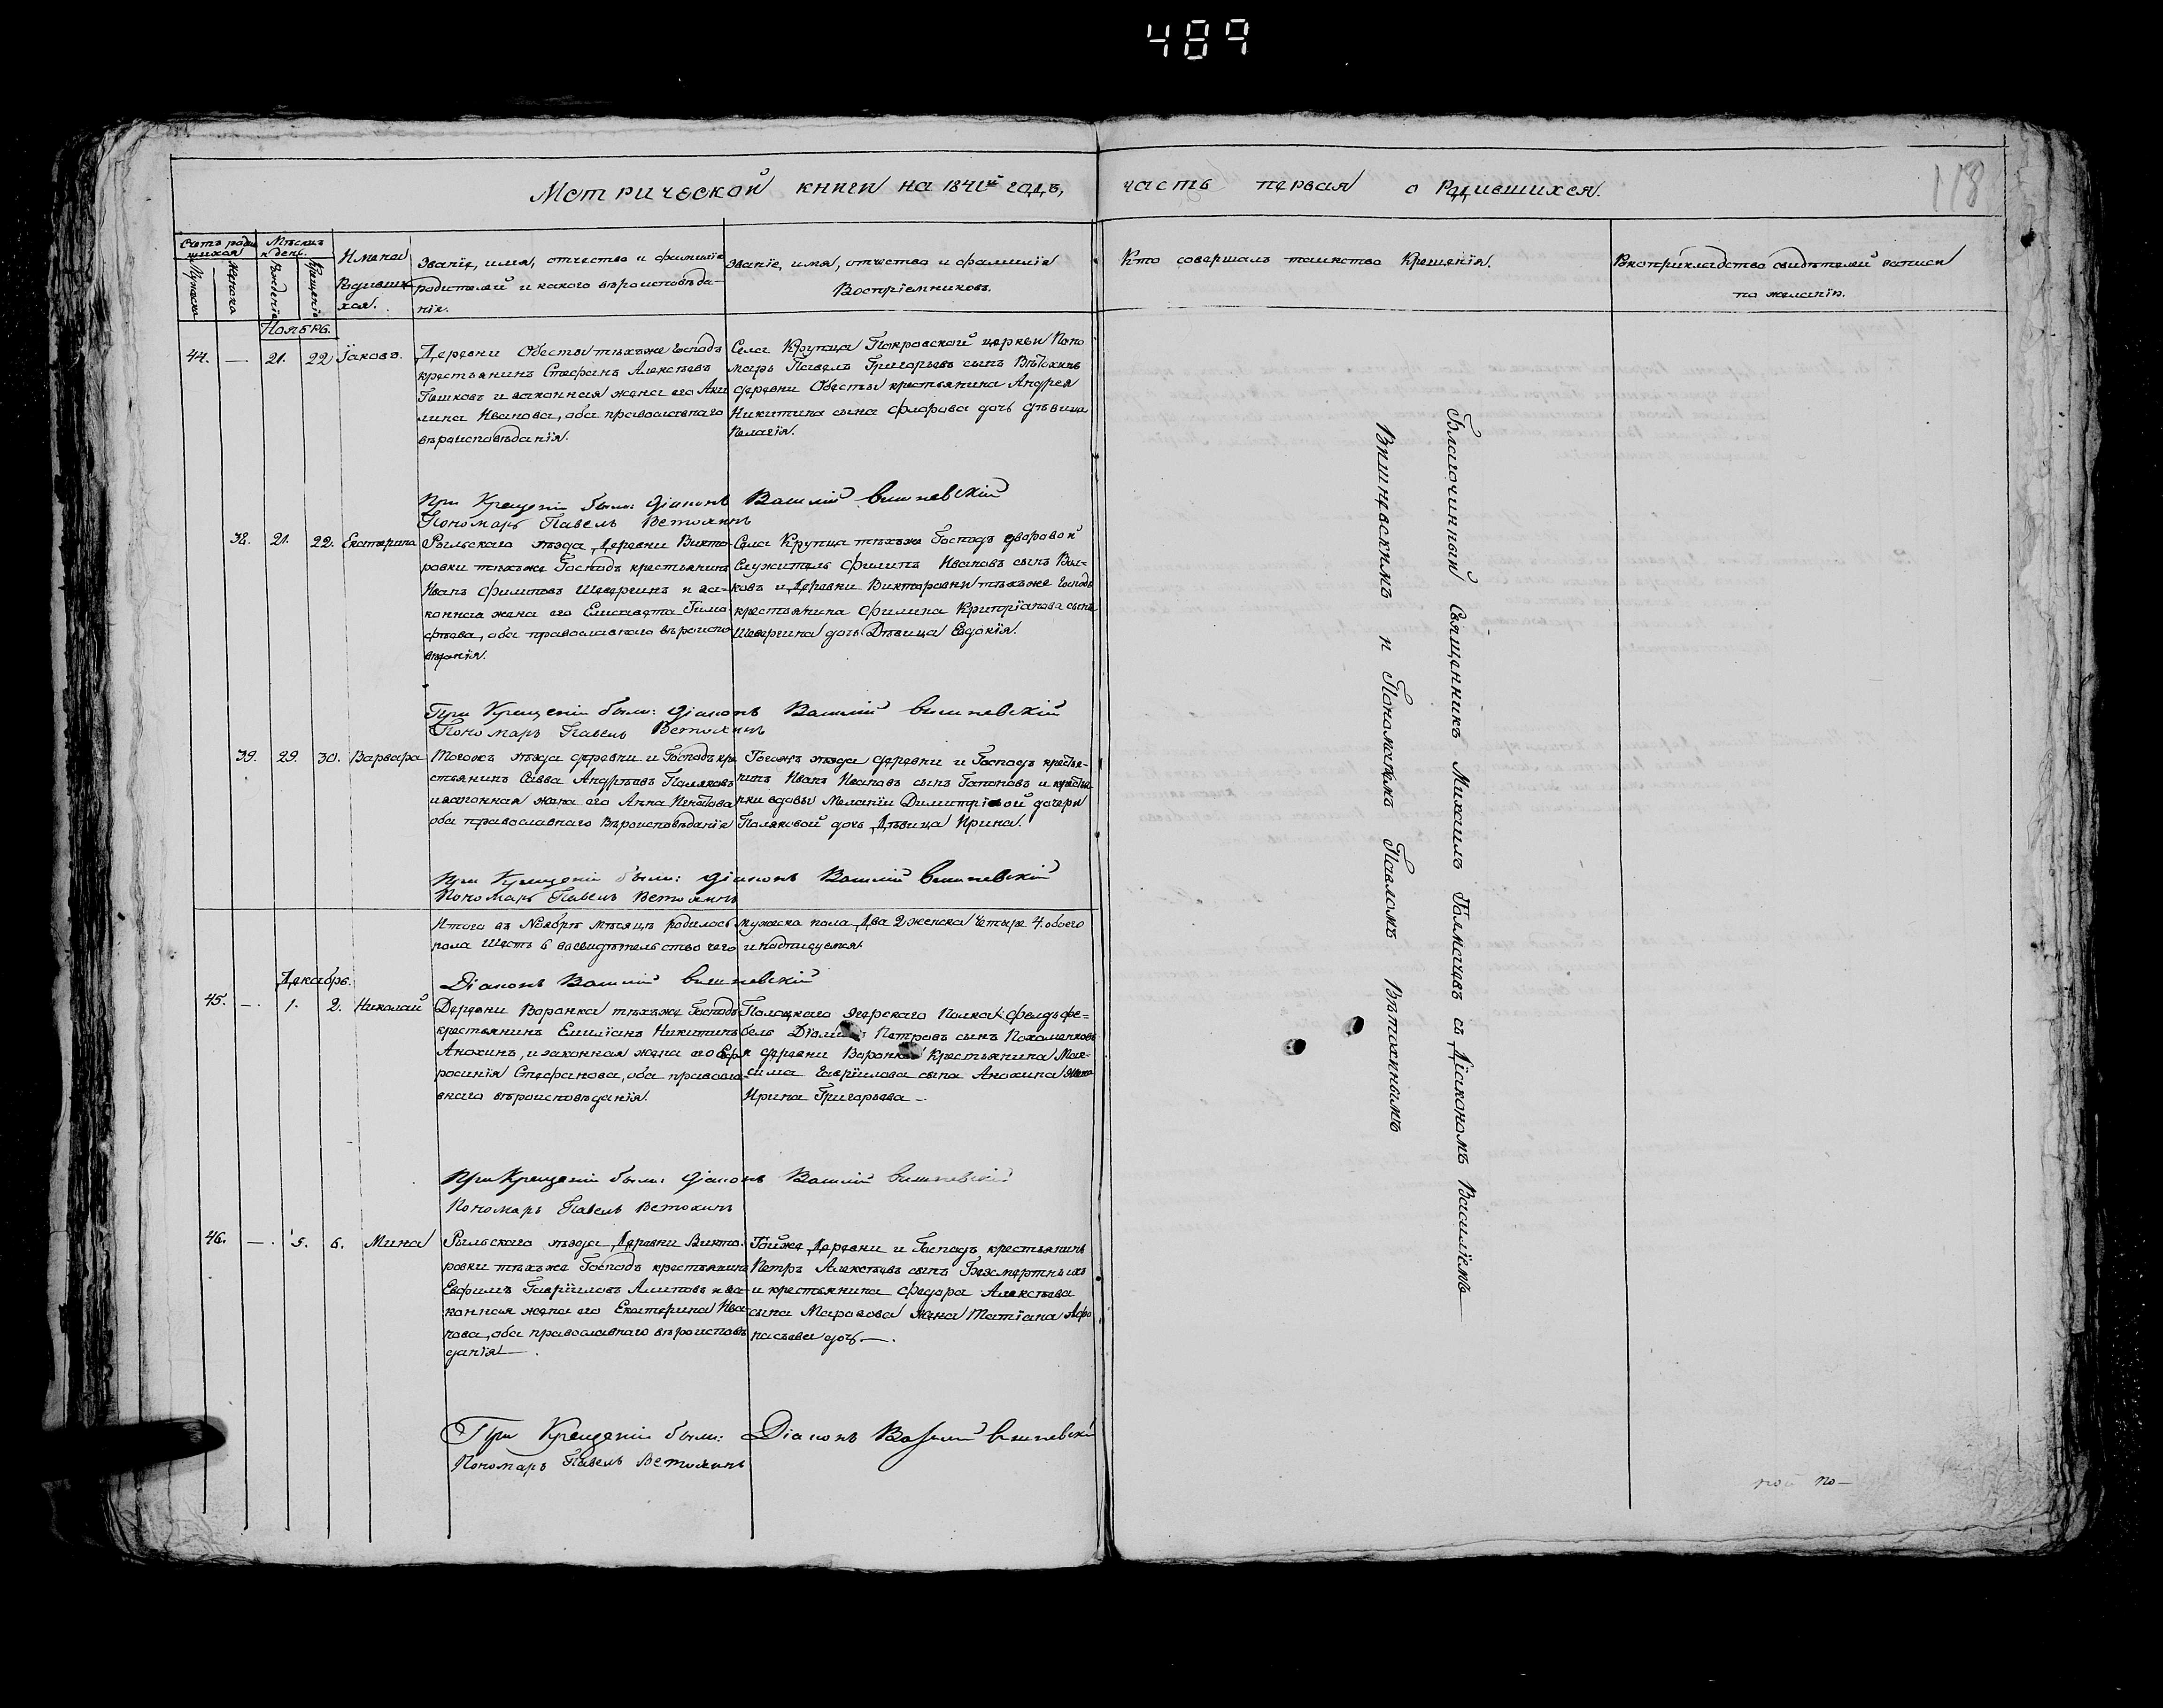 489
118
Метрической книги на 1841й годъ, часть первая о родившихся.
Счетъ роди
вшихся
Мужеска
Женска
Мѣсяцъ
и день.
Рожденія
Крещенія
Имена
Родивши
хся.
Званіе, имя, отчество и фамилія
родителей и какого вѣроисповѣда-
нія.
Званіе, имя, отчество и фамилія
Воспріемниковъ.
Кто совершалъ таинство Крещенія.
Рукоприкладство свидѣтелей записи
по желанію.
Ноябрь.
44. — 21. 22 Іаковъ.
Деревни Обесты тѣхъже Господъ
крестьянинъ Стефанъ Алексѣевъ
Пешковъ и законная жена его Аки
лина Иванова, оба православнаго
вѣроисповѣданія.
Села Крупца Покровской церкви Поно
марь Павелъ Григорьевъ сынъ Вѣтохинъ
деревни Обесты крестьянина Андрея
Никитина сына Флорова дочь дѣвица
Пелагія.
При Крещеніи были: Діаконъ Василій Вишневскій
Пономарь Павелъ Ветохинъ
38. 21. 22. Екатерина
Рыльскаго уѣзда Деревни Викто-
ровки тѣхъже Господъ крестьянинъ
Иванъ Филиповъ Шеверкинъ и за-
конная жена его Елисавета Тимо-
фѣева, оба православнаго вѣроиспо
вѣданія.
Села Крупца тѣхъже Господъ дворовой
Служитель Филипъ Ивановъ сынъ Вол-
ковъ и Деревни Викторовки тѣхъже Господъ
крестьянина Филипа сына
дочь Дѣвица Евдокія.
При Крещеніи были: Діаконъ Василій Вишневскій
Пономарь Павелъ Ветохинъ
39. 29. 30. Варвара
Тогожъ уѣзда деревни и Господъ кре
стьянинъ Савва Андрѣевъ Поляковъ
и законная жена его Анна
оба православнаго Вѣроисповѣданія
Тогожъ уѣзда деревни и Господъ крестья-
нинъ Иванъ Ивановъ сынъ Гапоновъ и крестья
нки вдовы Меланіи Димитріевой дочери
Поляковой дочь Дѣвица Ирина.
При Крещеніи были: Діаконъ Василій Вишневскій
Пономарь Павелъ Ветохинъ
Итого въ Ноябрѣ мѣсяцѣ родилось мужеска пола Два 2 женска Четыре 4. обоего
пола Шесть 6 во свидѣтельство чего и подписуемся.
Діаконъ Василій Вишневскій
Декабрь.
45. — 1. 2. Николай
Деревни Воронка тѣхъже Господъ
крестьянинъ Емиліанъ Никитинъ
Анохинъ, и законная жена его Евф
росинія Стефанова, оба правосла-
внаго вѣроисповѣданія.
Полоцкаго Егерскаго Полка Фельдфе=
бель Петровъ сынъ Похоменковъ
и деревни Воронка Крестьянина Мак-
сима Гавріилова сына Анохина жена
Ирина Григорьева —.
При Крещеніи были: Діаконъ Василій Вишневскій
Пономарь Павелъ Ветохинъ
46. — 5. 6. Мина
Рыльскаго уѣзда Деревни Викто-
ровки тѣхъже Господъ крестьянинъ
Евфимъ Гавріиловъ Алиповъ и за-
конная жена его Екатерина Ива
нова, оба православнаго вѣроисповѣ
данія —.
Тойже Деревни и Господъ крестьянинъ
Петръ Алексѣевъ сынъ Безсмертныхъ
и крестьянина Федора Алексѣева
сына Марахова Жена Татіана Афо
насьева дочь —.
При Крещеніи были: Діаконъ Василій Вишневскій
Пономарь Павелъ Ветохинъ
Благочинный Священникъ Михаилъ съ Діакономъ Василіемъ
Вишневскимъ и Пономаремъ Павломъ Вѣтохинымъ
по—